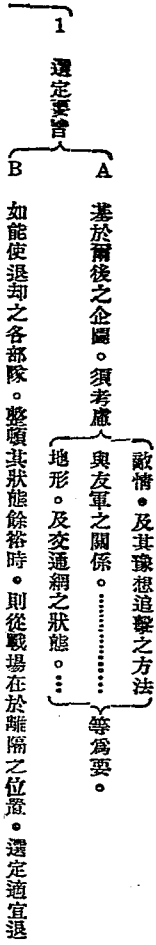 1 選定要旨
A 基於爾後之企圖。須考慮
敵情。及其豫想追擊之方法
與友軍之關係。………………
地形。及交通網之狀態。…
等爲要。
B 如能使退却之各部隊。整頓其狀態餘裕時。則從戰場在於離隔之位置。選定適宜退